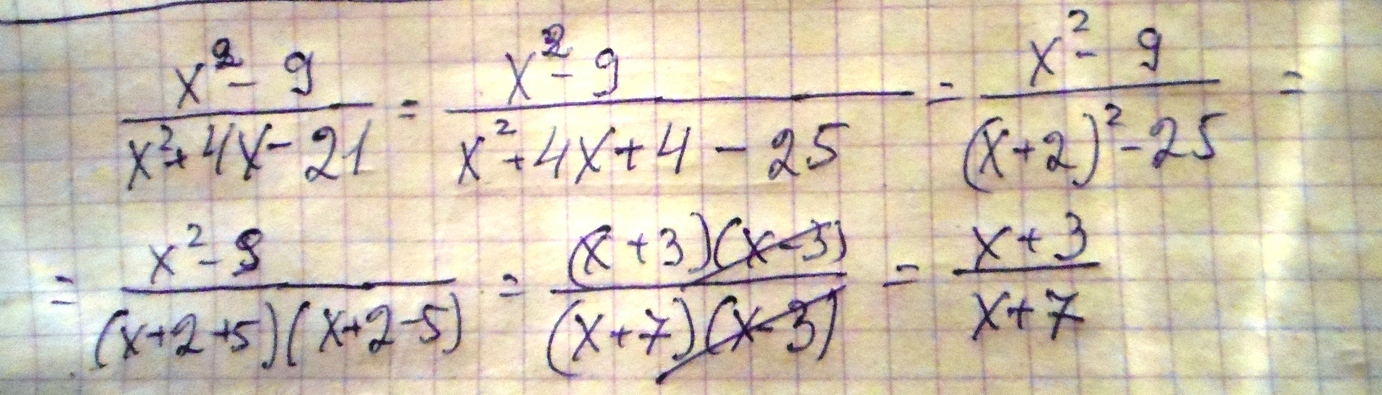 x² - 9 / x² + 4x - 21 = x² - 9 / x² + 4x + 4 - 25 = x² - 9 / (x+2)² - 25 =
= x² - 9 / (x+2+5)(x+2-5) = (x+3)(x-3) / (x+7)(x-3) = x+3 / x+7